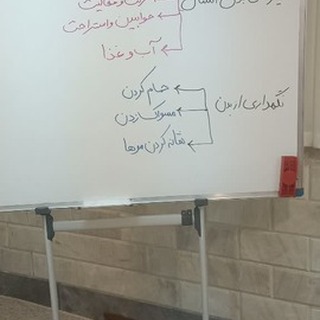 و فعالیت
خوابیدن و استراحت
آب و غذا
نگهداری از بدن
حمام کردن
مسواک زدن
شانه کردن موها